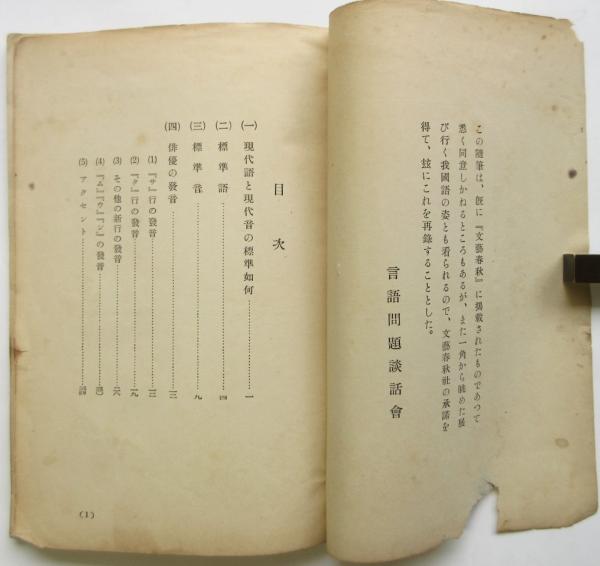 この隨筆は、旣に『文藝春秋』に揭載されたものであつて
悉く同意しかねるところもあるが、また一角から眺めた延
び行く我國語の姿とも看られるので、文藝春秋社の承諾を
得て、玆にこれを再錄することとした。
言語問題談話會
目次
(一) 現代語と現代音の標準如何…………一
(二) 標準語…………四
(三) 標準音…………九
(四) 俳優の發音…………一三
(1) 『サ』行の發音…………一三
(2) 『ク』行の發音…………一九
(3) その他の新行の發音…………二六
(4) 『ム』『ウ』『ジ』の發音
(5) アクセント
(1)